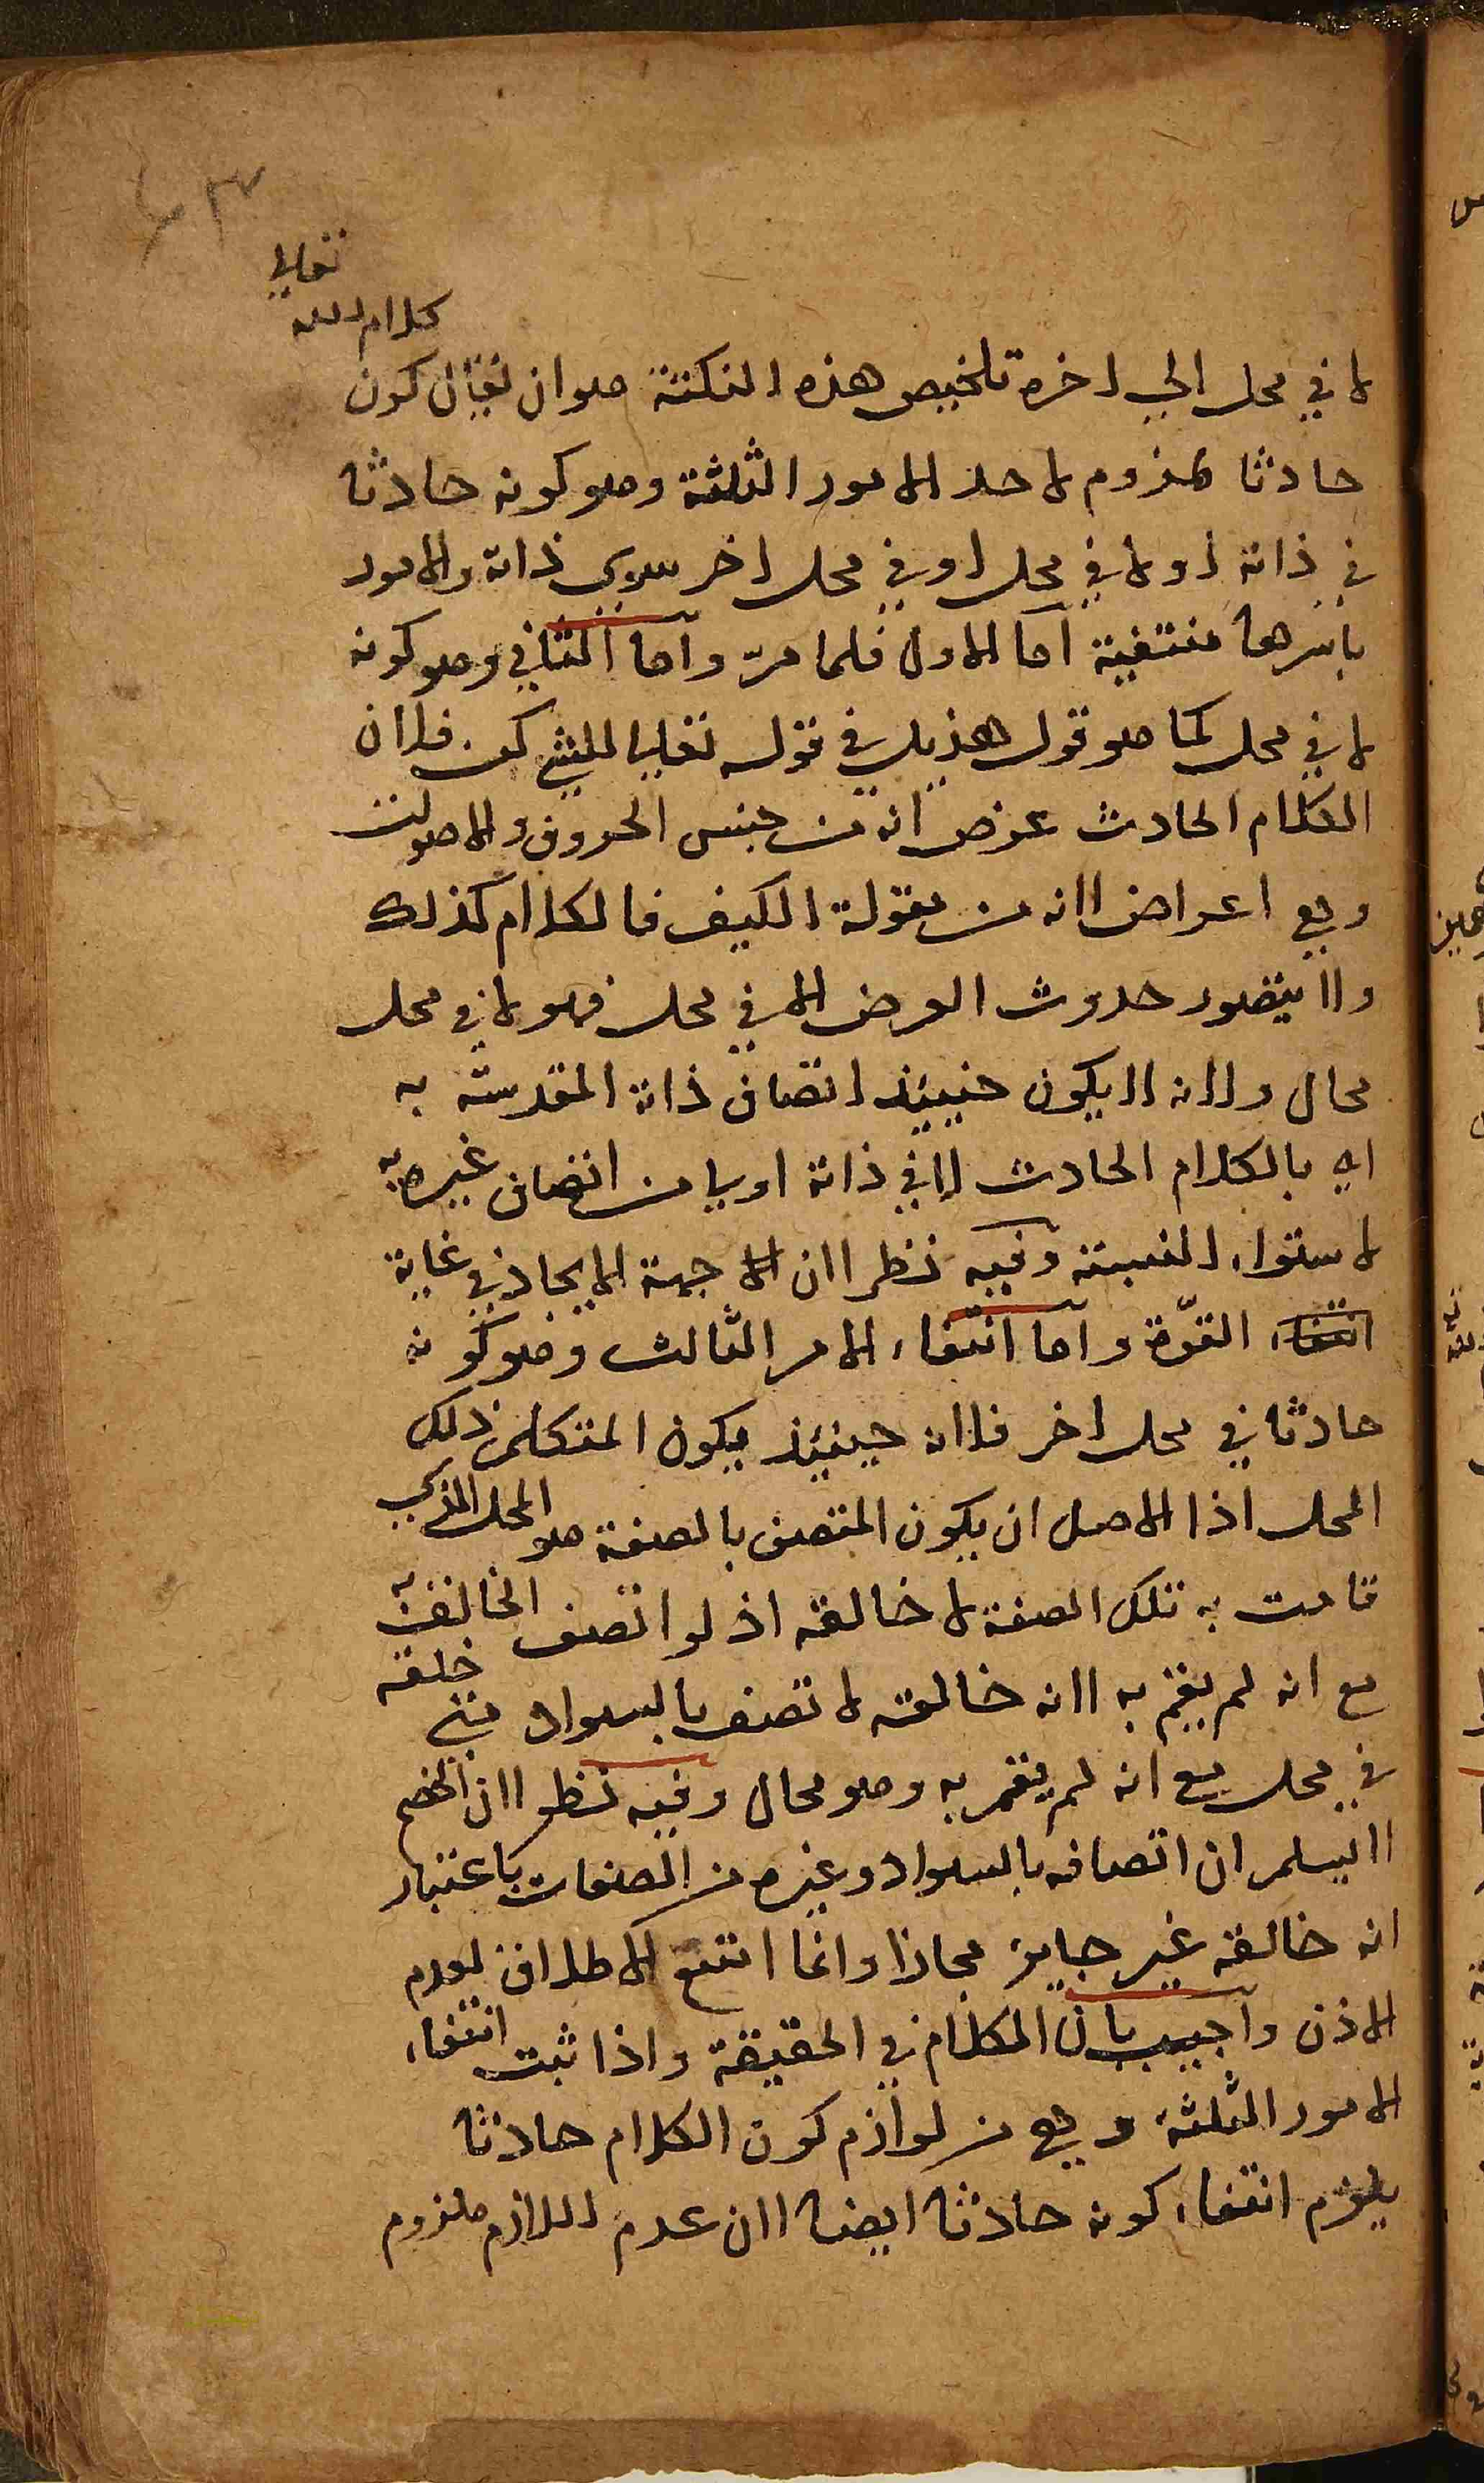 ٤٣
لا في محل الي اخره تلخيص هذه النكتة هو ان يقال كون كلام الله تعالى
حادثا ملزوم لاحد الامور الثلثة وهو كونه حادثا
في ذاته او لا في محل او في محل اخر سوى ذاته والامور
باسرها منتفية اما الاول فلما مرّ واما الثاني وهو كونه
لا في محل كما هو قول هذيل في قوله تعالى للشيء كن فلان
الكلام الحادث عرض لانه من جنس الحروف والاصوات
وهي اعراض لانه من مقولة الكيف فالكلام كذلك
ولا يتصور حدوث العرض الا في محل فهو لا في محل
محال ولانه لا يكون حينئذ اتصاف ذاته المقدسة به
اي بالكلام الحادث لا في ذاته اولى من اتصاف غيره به
لاستواء النسبة وفيه نظر لان الا جهة الايجاد في غاية
القوّة واما انتفاء الامر الثالث وهو كونه
حادثا في محل اخر فلانه حينئذ يكون المتكلم ذلك
المحل اذ الاصل ان يكون المتصف بالصفة هو المحل الذي
قامت به تلك الصفة لا خالقه اذ لو اتصف الخالق به
مع انه لم يقم به لانه خالقه لاتصف بالسواد متى خلقه
في محل مع انه لم يقم به وهو محال وفيه نظر لان الخصم
لا يسلم ان اتصافه بالسواد وغيره من الصفات باعتبار
انه خالقه غير جايز مجازا وانما امتنع الاطلاق لعدم
الاذن واجيب بان الكلام في الحقيقة واذا ثبت انتفاء
الامور الثلثة وهي من لوازم كون الكلام حادثا
يلزم انتفاء كونه حادثا ايضا لان عدم اللازم ملزوم